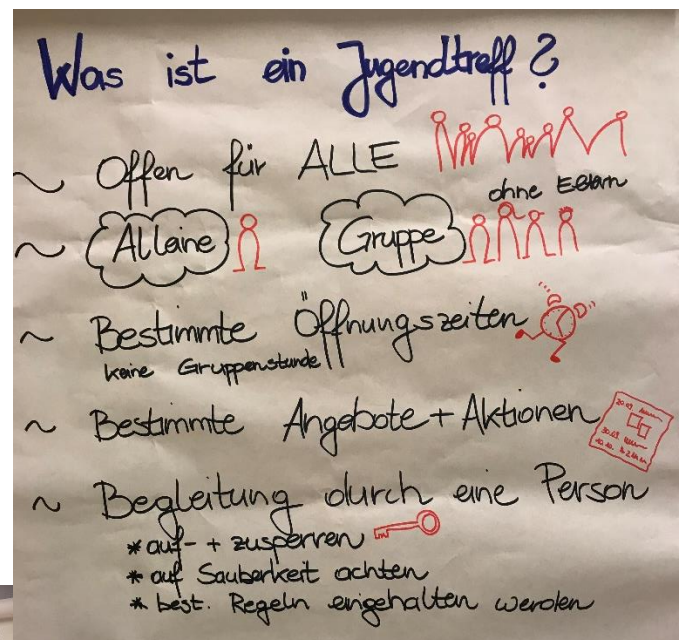 Was ist ein Jugendtreff?
~ Offen für ALLE
ohne Eltern
~ Alleine Gruppe
~ Bestimmte Öffnungszeiten
keine Gruppenstunde
~ Bestimmte Angebote + Aktionen
~ Begleitung durch eine Person
* auf- + zusperren
* auf Sauberkeit achten
* best. Regeln eingehalten werden